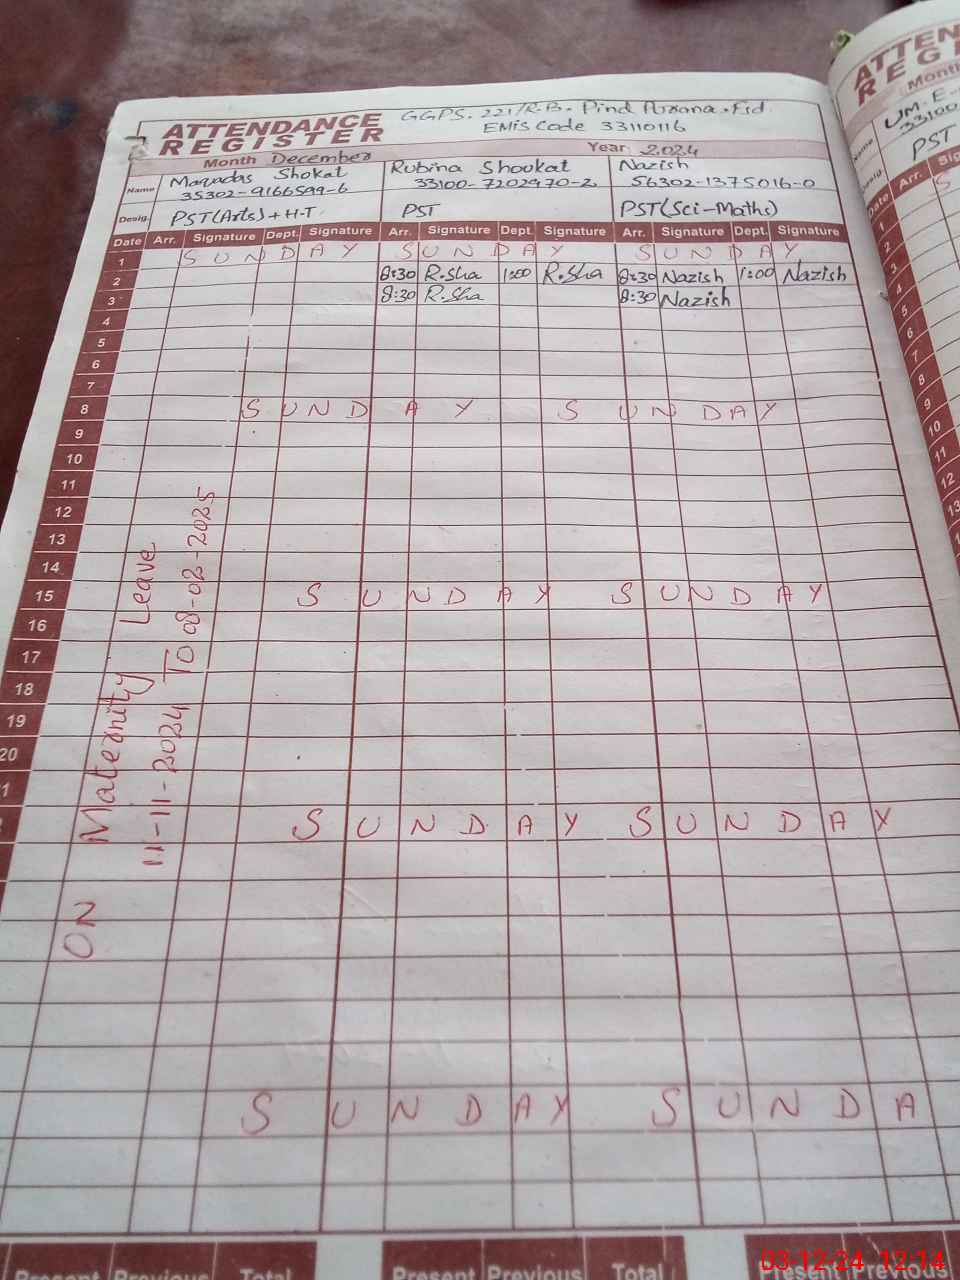 GGPS. 221/R.B. Pind Araana. Fsd
ATTENDANCE
REGISTER
EMiS Code 33110116
Month December
Year 2024
Name
Shokat
35302-9166599-6
Rubina Shookat
33100-7202970-2
Nazish
56302-1375016-0
Desig. PST(Arts)+H-T PST PST(Sci-Maths)
Date Arr. Signature Dept. Signature Arr. Signature Dept. Signature Arr. Signature Dept. Signature
1 SUNDAY SUNDAY SUNDAY
2 8:30 R.sha 1:00 R.sha 8:30 Nazish 1:00 Nazish
3 8:30 R.Sha 8:30 Nazish
4
5
6
7
8 SUNDAY SUNDAY
9
10
11
12
13
14
15 SUNDAY SUNDAY
16
17
18
19
20
1
SUNDAY SUNDAY
SUNDAY SUNDA
ON Maternity Leave
11-11-2024 TO 08-02-2025
Present Previous Total Present Previous Total Present Previous
ATTEN
REGI
Month
UM-E-
33100
Name
Desig.
PST
Date Arr. Sig
S
1
2
3
4
5
6
7
8
9
10
11
12
13
03-12-24 12:14